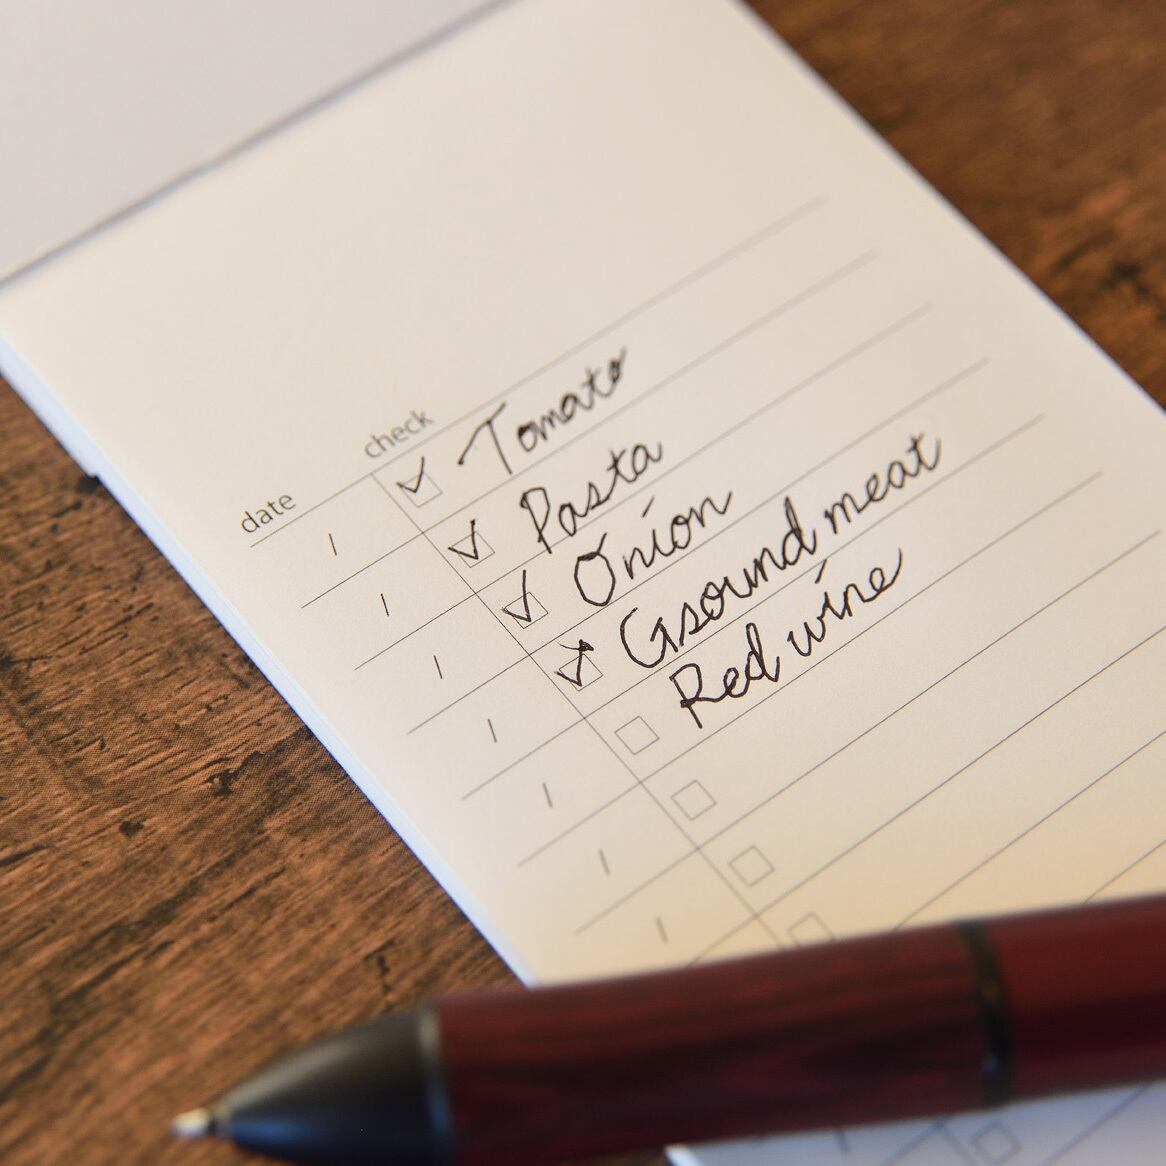 date check
Tomato
Pasta
Onion
Gsound meat
Red wine